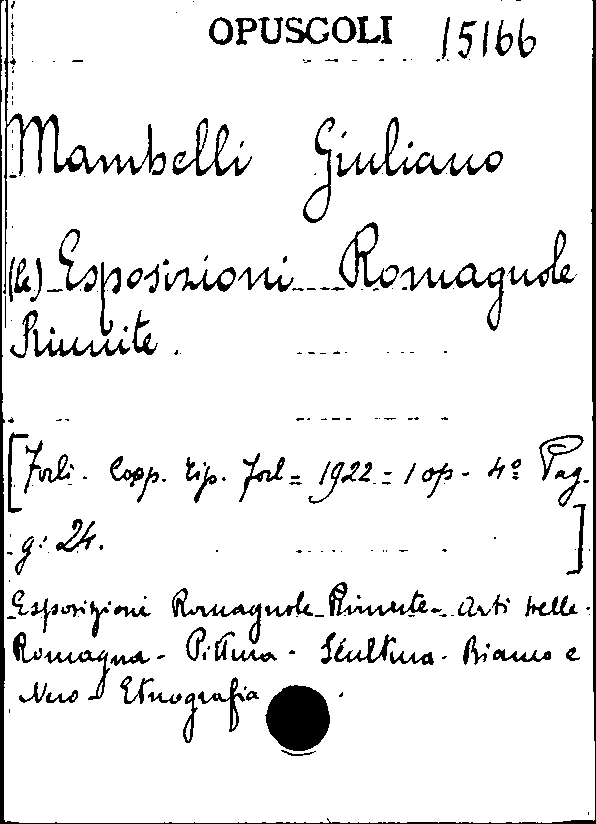 OPUSCOLI 15166
Mambelli Giuliano
(le) Esposizioni Romagnole
Riunite.
[Forlì. Coop. tip. Forl = 1922 = 1 op - 4º Pag.
g: 24.]
Esposizioni Romagnole Riunite - Arti belle -
Romagna - Pittura - Scultura - Bianco e
Nero - Etnografia.